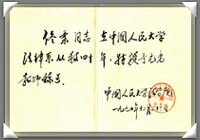 佟柔同志在中国人民大学
法律系从教四十年，特授予光荣
教师称号。
中国人民大学法律系
一九九〇年